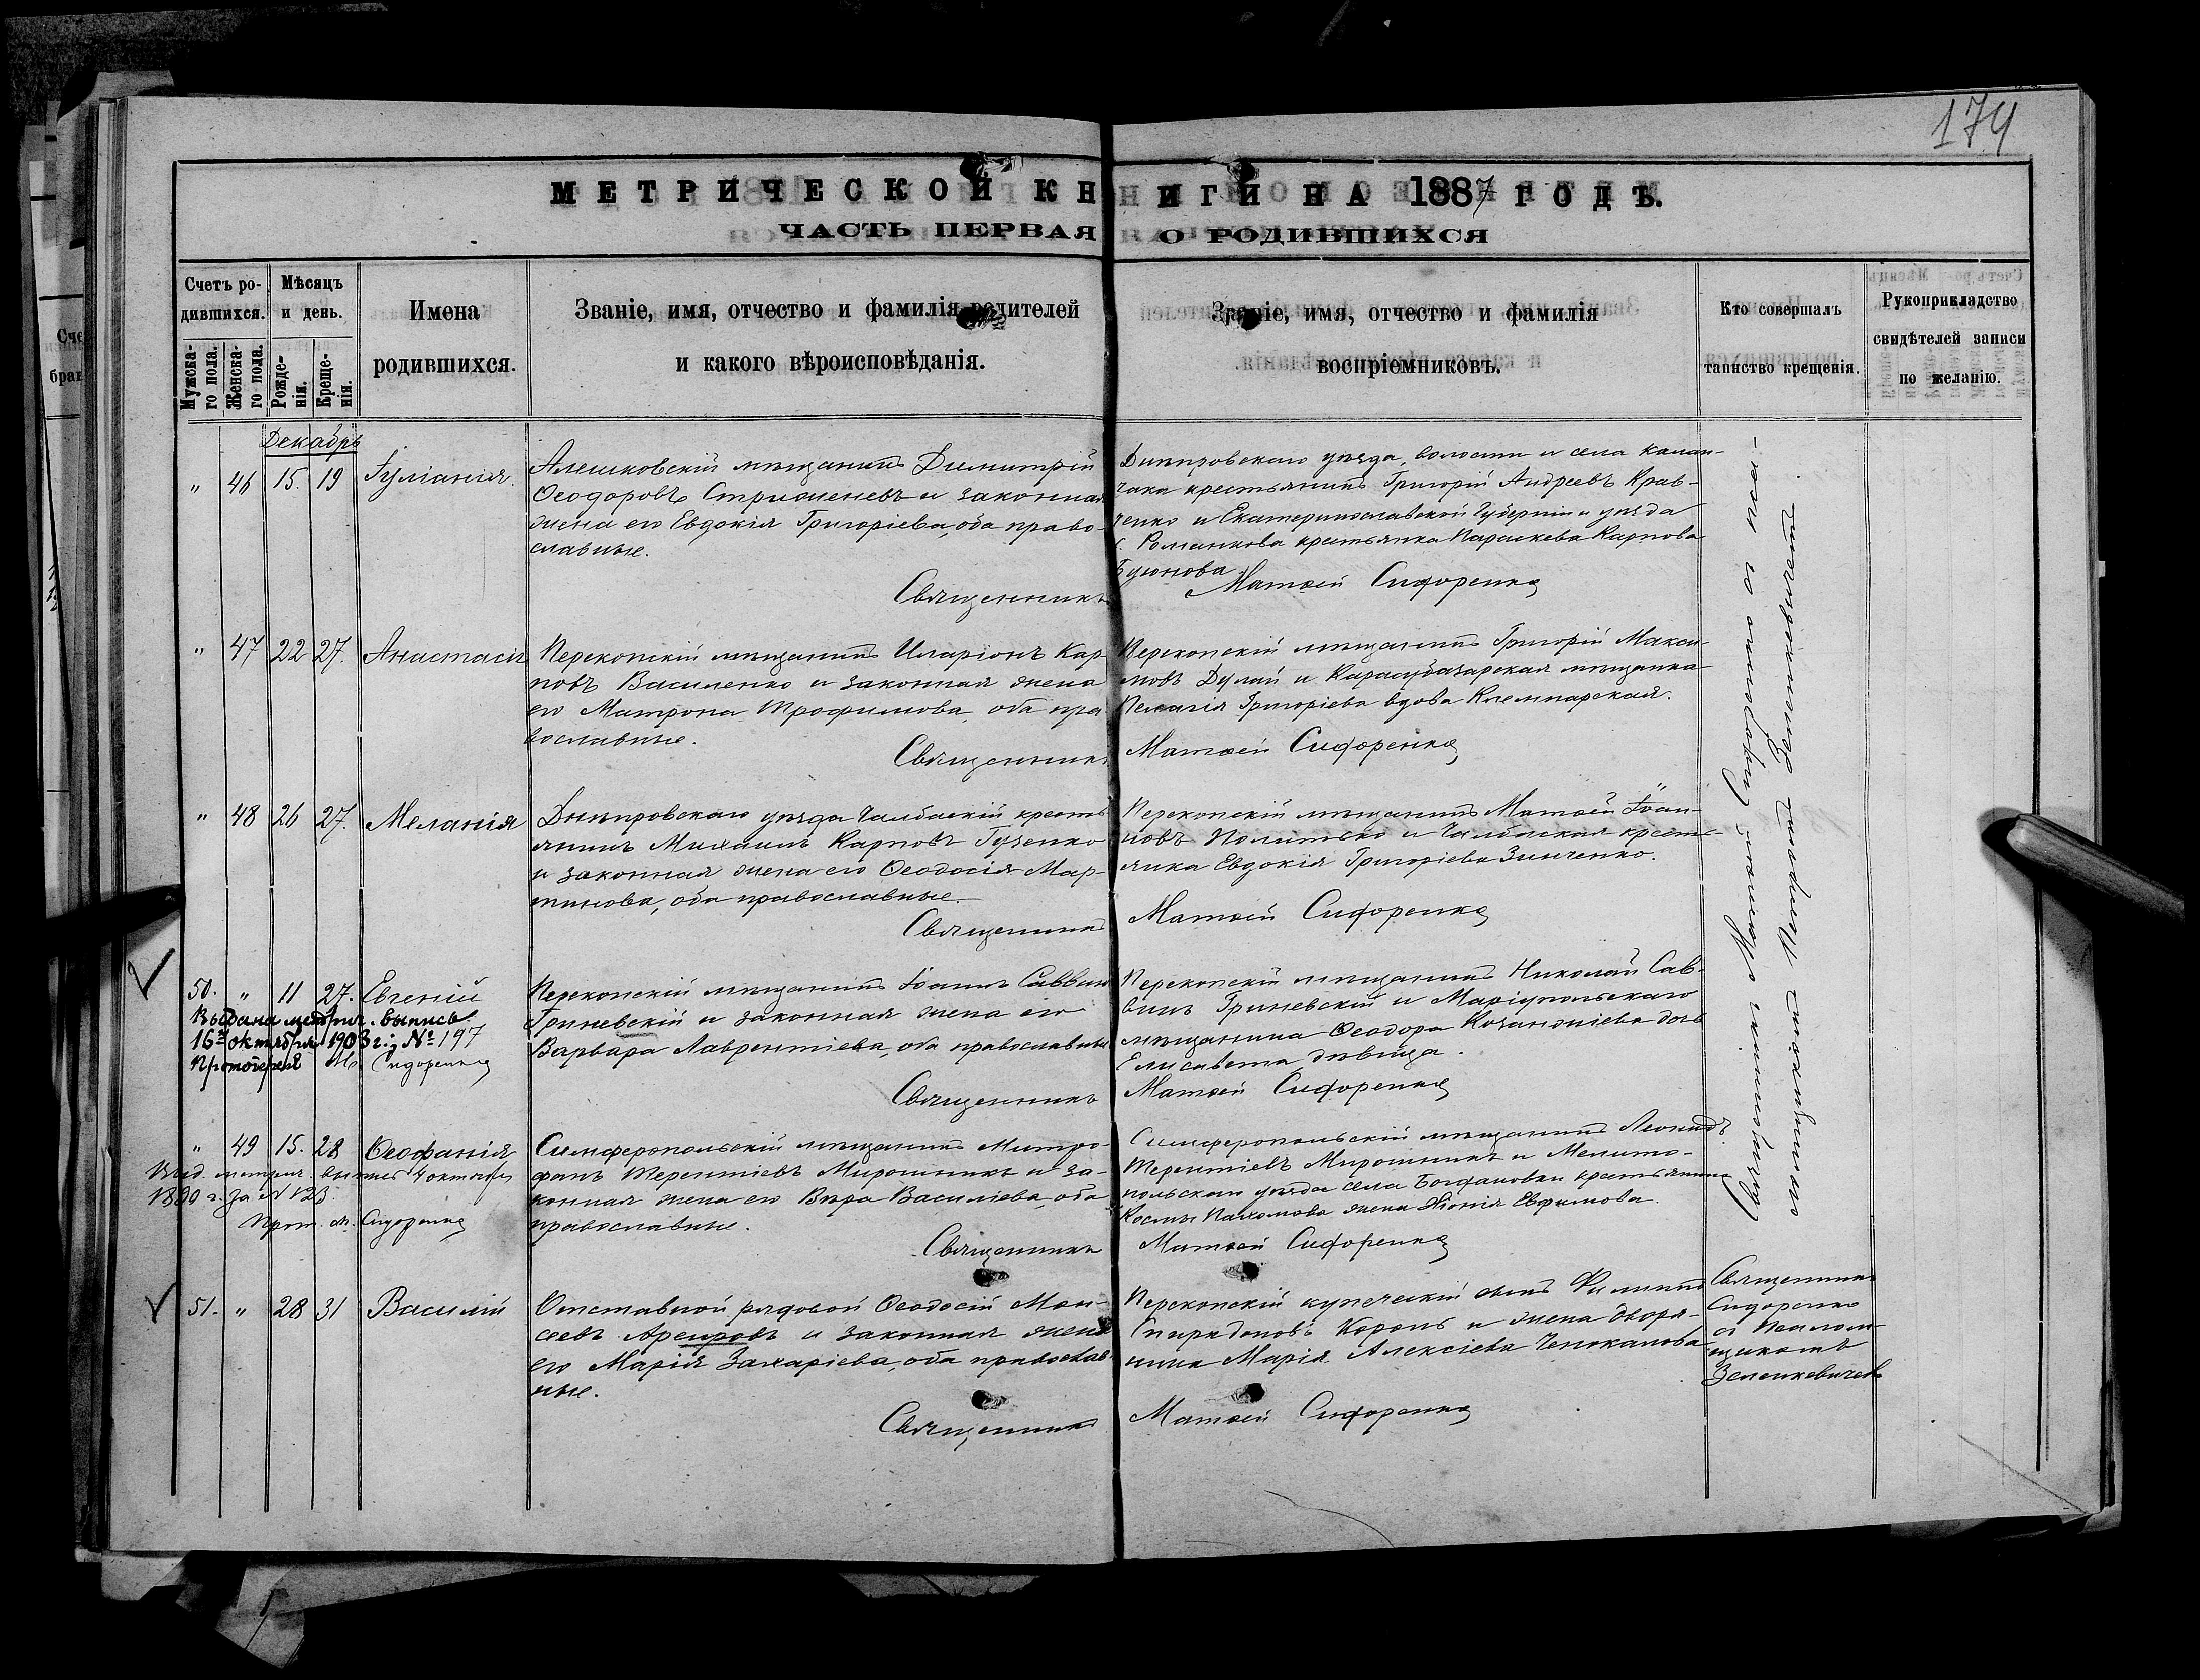 174
МЕТРИЧЕСКОЙ КНИГИ НА 1887 ГОДЪ.
ЧАСТЬ ПЕРВАЯ О РОДИВШИХСЯ
Счетъ родившихся.
Мужскаго пола.
Женскаго пола.
Мѣсяцъ и день.
Рожденія.
Крещенія.
Имена
родившихся.
Званіе, имя, отчество и фамилія родителей
и какого вѣроисповѣданія.
Званіе, имя, отчество и фамилія
воспріемниковъ.
Кто совершалъ
таинство крещенія.
Рукоприкладство
свидѣтелей записи
по желанію.
Декабрь
" 46 15. 19 Іуліанія.
Алешковскій мѣщанинъ Димитрій
Ѳеодоровъ Стриженевъ и законная
жена его Евдокія Григоріева, оба право-
славные.
Священникъ
Днѣпровскаго уѣзда, волости и села Калан-
чака крестьянинъ Григорій Андреевъ Крав-
ченко и Екатеринославской Губерніи и уѣзда
с. Романкова крестьянка Параскева Карпова
Матѳей Сидоренко
" 47 22 27. Анастасія
Перекопскій мѣщанинъ Иларіонъ Кар-
повъ Василенко и законная жена
его Матрона Трофимова, оба пра-
вославные.
Священникъ
Перекопскій мѣщанинъ Григорій Макси-
мовъ Дулай и Карасубазарская мѣщанка
Пелагія Григоріева вдова
Матѳей Сидоренко
" 48 26 27. Меланія
Днѣпровскаго уѣзда Чалбаскій кресть-
янинъ Михаилъ Карповъ Гузенко
и законная жена его Ѳеодосія Мар-
тинова, оба православные.
Священникъ
Перекопскій мѣщанинъ Матѳей Іоан-
новъ и Чалбаская кресть-
янка Евдокія Григоріева Зинченко.
Матѳей Сидоренко
50. " 11 27. Евгеній
Выдана метрич. выпись
16го октября 1903 г. № 197
Протоіерей М. Сидоренко
Перекопскій мѣщанинъ Іоаннъ Саввинъ
Гриневскій и законная жена его
Варвара Лаврентіева, оба православные
Священникъ
Перекопскій мѣщанинъ Николай Сав-
винъ Гриневскій и Маріупольскаго
мѣщанина Ѳеодора дочь
Елисавета дѣвица.
Матѳей Сидоренко
" 49 15. 28 Ѳеофанія
Выд. метрич. выпись 4 октября
1899 г. за № 123.
Прот. М. Сидоренко
Симферопольскій мѣщанинъ Митро-
фанъ Терентіевъ Мирошникъ и за-
конная жена его Вѣра Василіева, оба
православные.
Священникъ
Симферопольскій мѣщанинъ Леонидъ
Терентіевъ Мирошникъ и Мелито-
польскаго уѣзда села Богдановки крестьянина
Космы Пахомова жена Евфимова.
Матѳей Сидоренко
51. " 28 31 Василій
Отставной рядовой Ѳеодосій Мои-
сеевъ и законная жена
его Марія Захаріева, оба православ-
ные.
Священникъ
Перекопскій купеческій сынъ Филиппъ
Спиридоновъ Король и жена дворя-
нина Марія Алексіева
Матѳей Сидоренко
Священникъ Матѳей Сидоренко съ пса-
ломщикомъ Зеленкевичемъ.
Священникъ
Сидоренко
съ Псалом-
щикомъ
Зеленкевичемъ